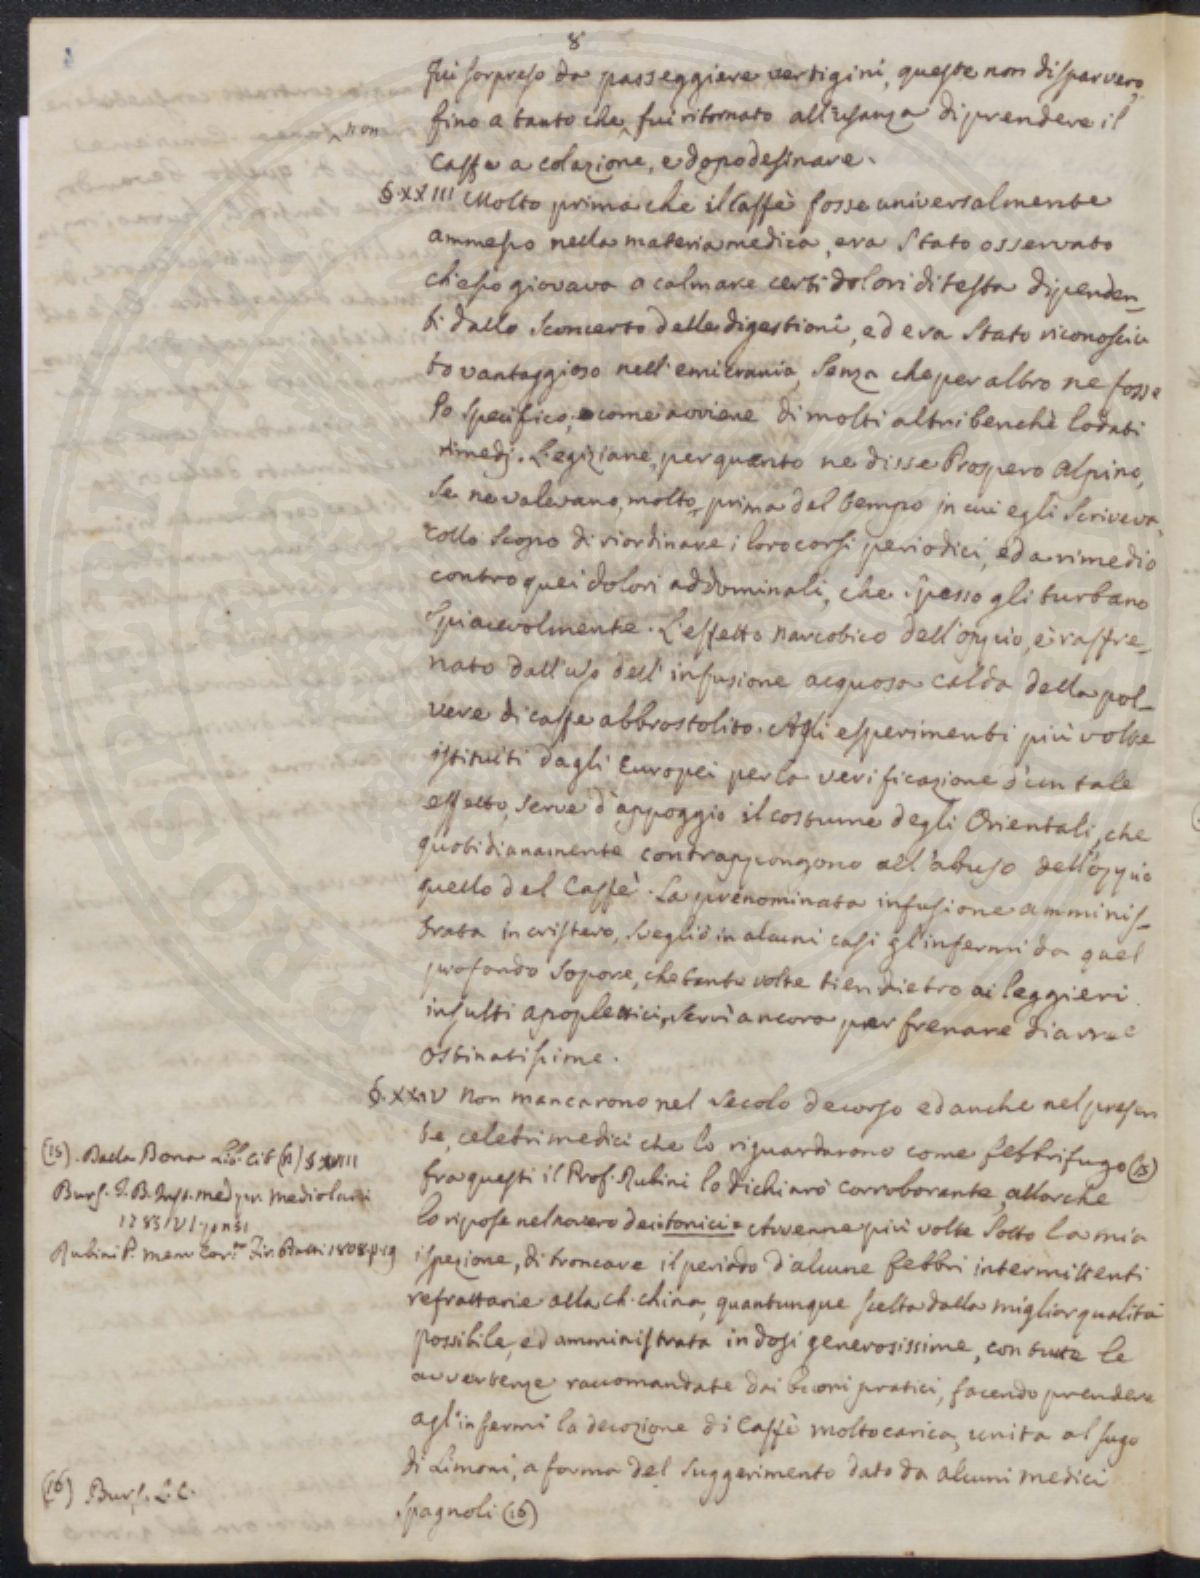 8
fui sorpreso da passeggiere vertigini, queste non disparvero,
fino a tanto che ‸ fui ritornato all'usanza di prendere il
‸ non
Caffe a colazione, e dopodesinare.
§. XXIII Molto prima che il Caffè fosse universalmente
ammesso nella materia medica, era stato osservato
ch'esso giovava a calmare certi dolori di testa dipenden-
ti dallo sconcerto delle digestioni, ed era stato riconosciu
to vantaggioso nell'emicrania, senza che per altro ne fosse
lo specifico, come avviene di molti altri benchè lodati
rimedj. L'egiziane, per quanto ne disse Prospero Alpino,
se ne valevano, molto prima del tempo in cui egli scriveva,
collo scopo di riordinare i loro corsi periodici, ed a rimedio
contro quei dolori addominali, che spesso gli turbano
spiacevolmente. L'effetto narcotico dell'oppio, è raffre-
nato dall'uso dell'infusione acquosa calda della pol-
vere di caffe abbrostolito. Agli esperimenti più volte
istituiti dagli Europei per la verificazione d'un tale
effetto, serve d'appoggio il costume degli Orientali, che
quotidianamente contrappongono all'abuso dell'oppio
quello del Caffè. La prenominata infusione amminis-
trata in cristero, svegliò in alcuni casi gl'infermi da quel
profondo sopore, che tante volte tien dietro ai leggieri
insulti apoplettici, servì ancora per frenare diarree
ostinatissime.
§. XXIV Non mancarono nel secolo decorso ed anche nel presen
te, celebri medici che lo riguardarono come febbrifugo (15)
fra questi il Prof. Rubini lo dichiarò corroborante, allorche
lo ripose nel novero dei tonici. Avvenne più volte sotto la mia
ispezione, di troncare il periodo d'alcune febbri intermittenti
refrattarie alla ch. china, quantunque scelta dalla miglior qualità
possibile, ed amministrata in dosi generosissime, con tutte le
avvertenze raccomandate dai buoni pratici, facendo prendere
agl'infermi la decozione di Caffè molto carica, unita al sugo
di Limoni, a forma del suggerimento dato da alcuni medici
spagnoli (16)
(15). Dalla Bona Lib. cit (n) § XVIII
Burs. I. B. Inst. med pr. Mediolani
1783 V I. p n 51
Rubini P. mem 1808 p 19
(16) Burs. L. C.